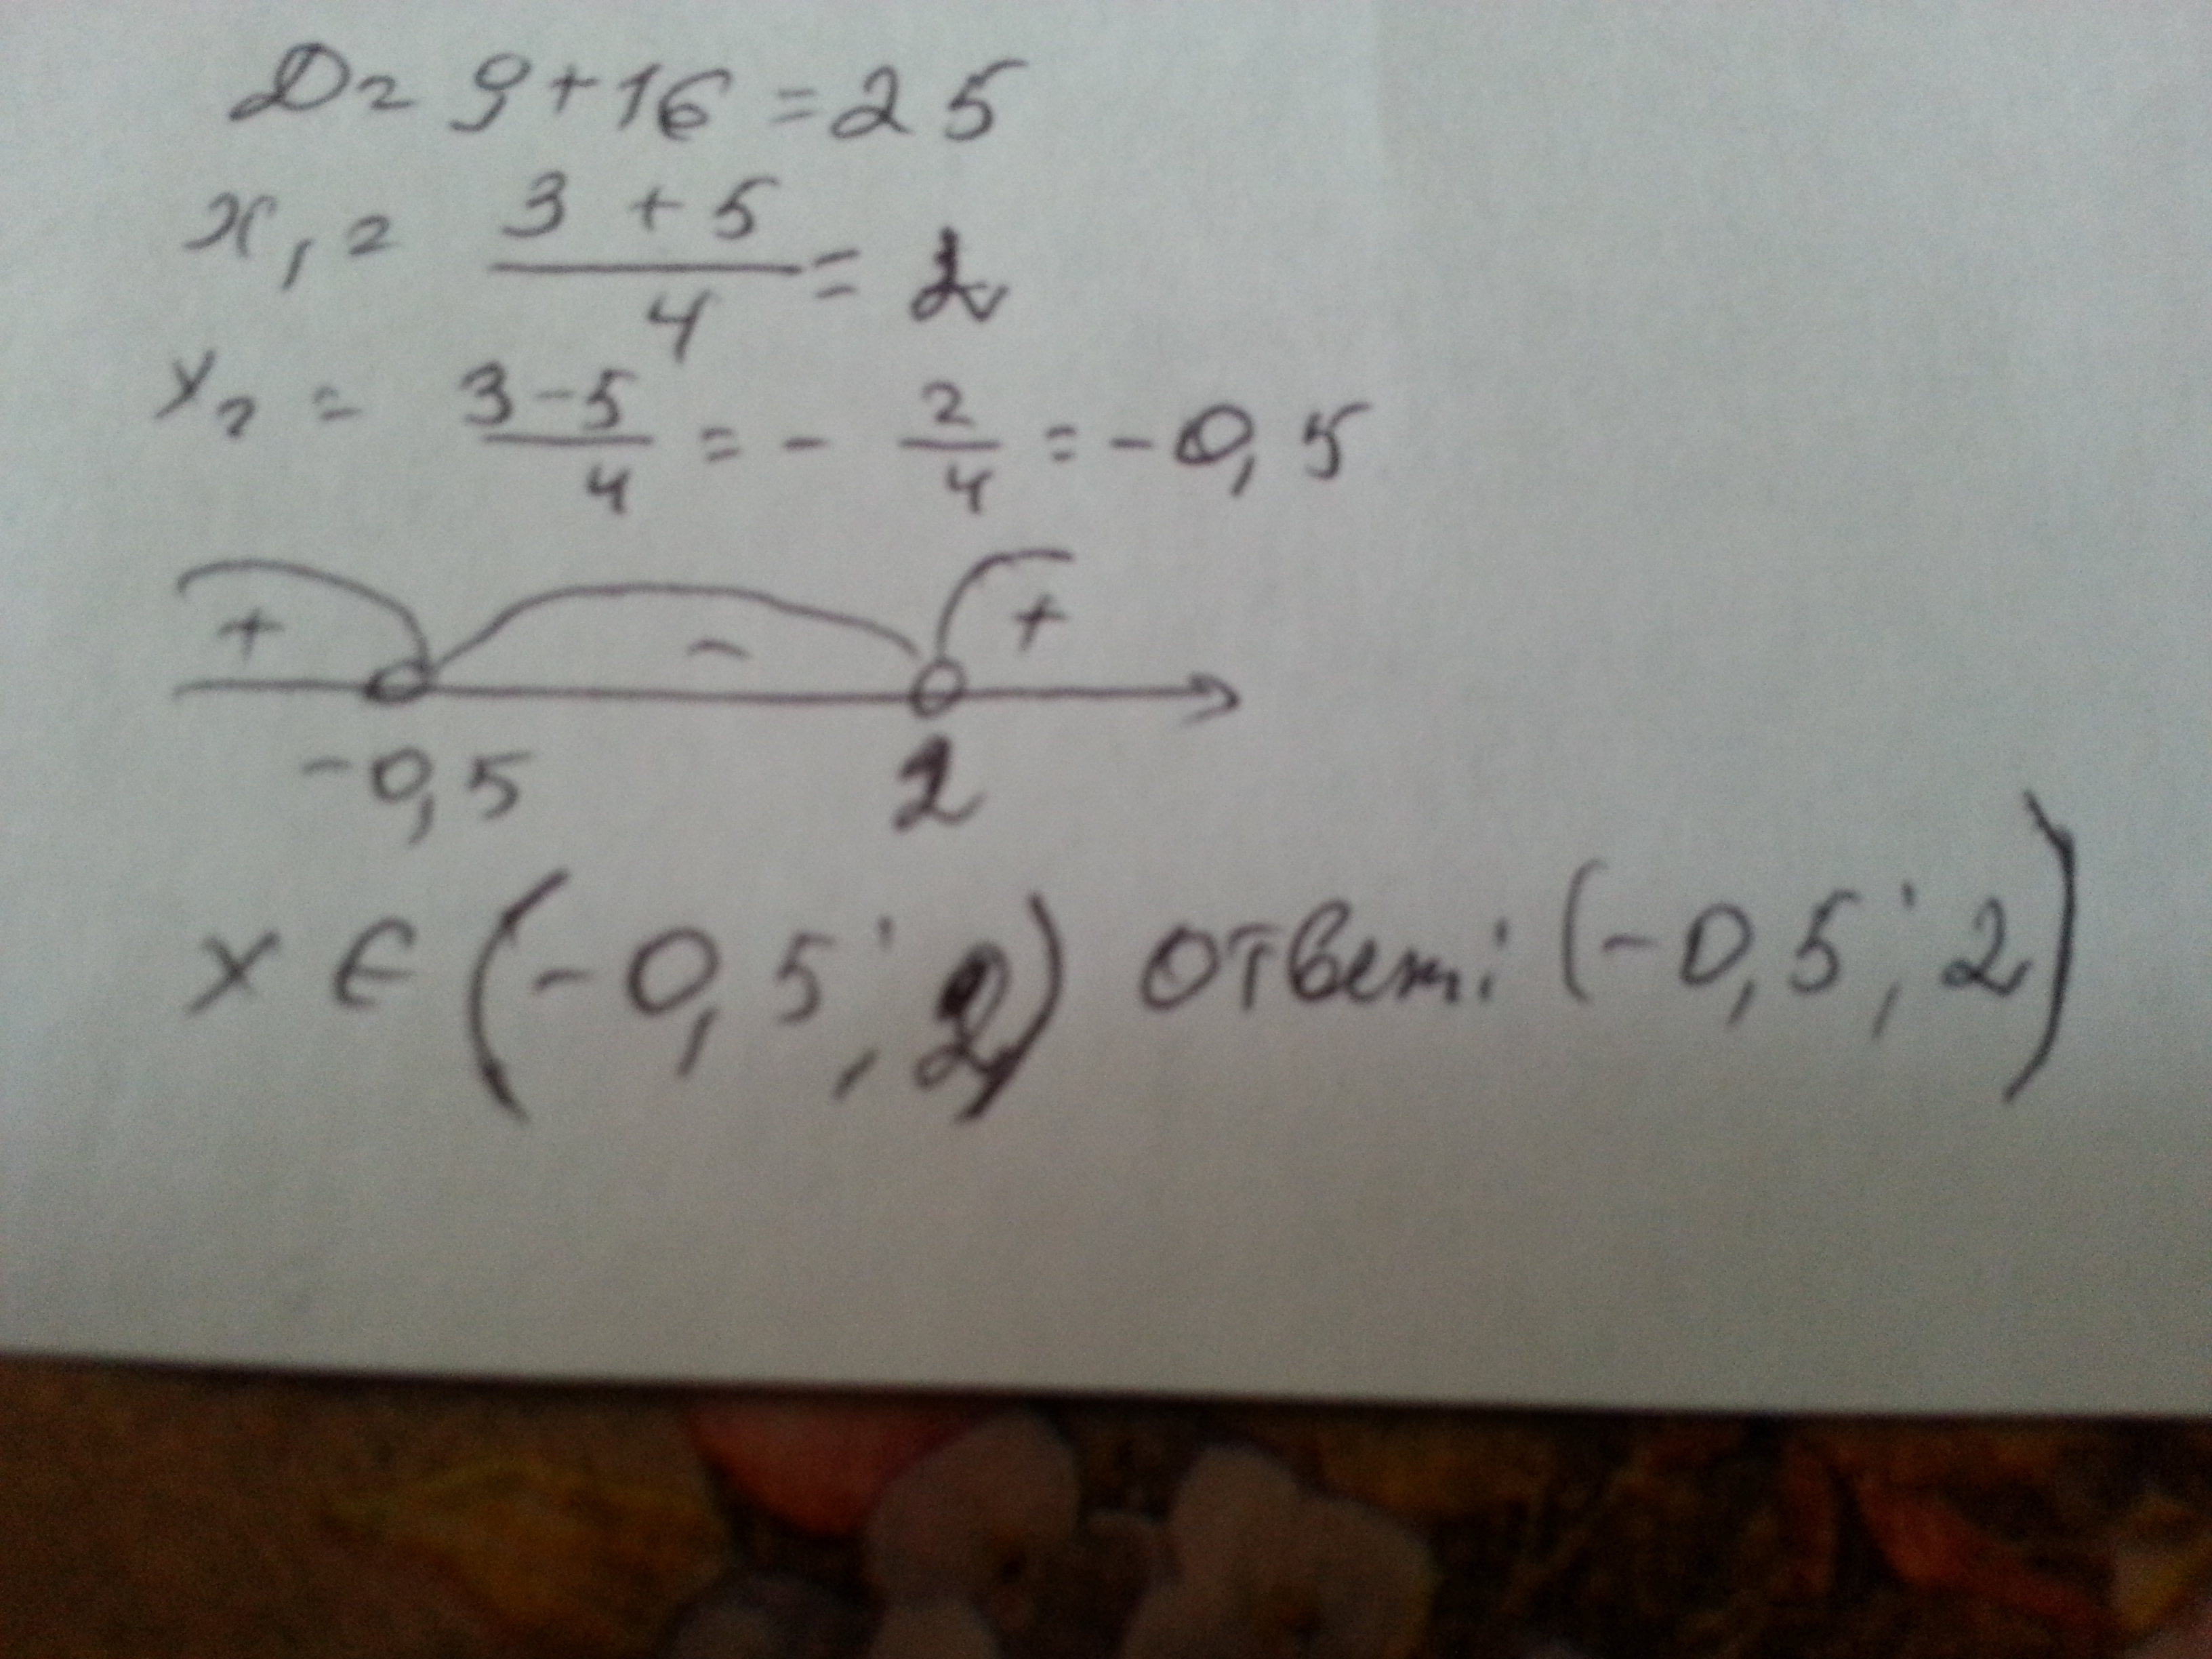 D = 9 + 16 = 25
x₁ = (3 + 5)/4 = 2
x₂ = (3 - 5)/4 = - 2/4 = -0,5
+ - +
-0,5 2
x ∈ (-0,5; 2) ответ: (-0,5; 2)